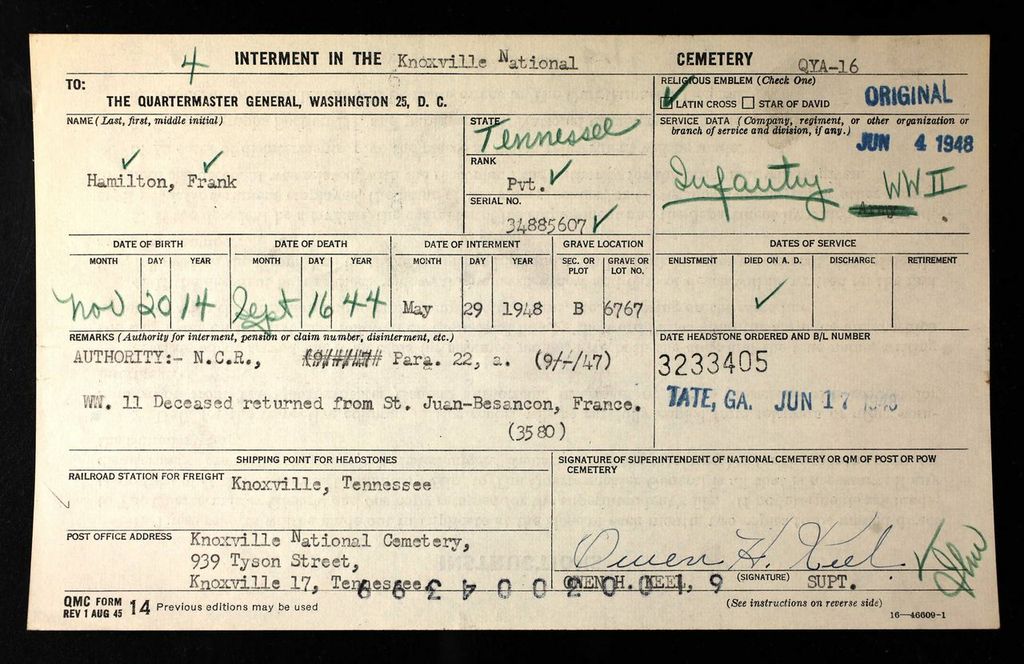 4 INTERMENT IN THE Knoxville National CEMETERY QYA-16
TO:
THE QUARTERMASTER GENERAL, WASHINGTON 25, D. C.
RELIGIOUS EMBLEM (Check One)
LATIN CROSS STAR OF DAVID
ORIGINAL
NAME (Last, first, middle initial)
Hamilton, Frank
STATE
Tennessee
RANK
Pvt.
SERIAL NO.
34885607
SERVICE DATA (Company, regiment, or other organization or
branch of service and division, if any.)
JUN 4 1948
Infantry WW II
Army
DATE OF BIRTH DATE OF DEATH DATE OF INTERMENT GRAVE LOCATION DATES OF SERVICE
MONTH DAY YEAR MONTH DAY YEAR MONTH DAY YEAR SEC. OR PLOT GRAVE OR LOT NO. ENLISTMENT DIED ON A. D. DISCHARGE RETIREMENT
Nov 20 14 Sept 16 44 May 29 1948 B 6767
REMARKS (Authority for interment, pension or claim number, disinterment, etc.)
AUTHORITY:- N.C.R., Para. 22, a. (9/-/47)
WW. 11 Deceased returned from St. Juan-Besancon, France.
(3580)
DATE HEADSTONE ORDERED AND B/L NUMBER
3233405
TATE, GA. JUN 17 1948
SHIPPING POINT FOR HEADSTONES
RAILROAD STATION FOR FREIGHT Knoxville, Tennessee
POST OFFICE ADDRESS Knoxville National Cemetery,
939 Tyson Street,
Knoxville 17, Tennessee
SIGNATURE OF SUPERINTENDENT OF NATIONAL CEMETERY OR QM OF POST OR POW
CEMETERY
Owen H. Keel
OWEN H. KEEL, (SIGNATURE) SUPT.
QMC FORM
REV 1 AUG 45 14 Previous editions may be used
(See instructions on reverse side)
16—46609-1